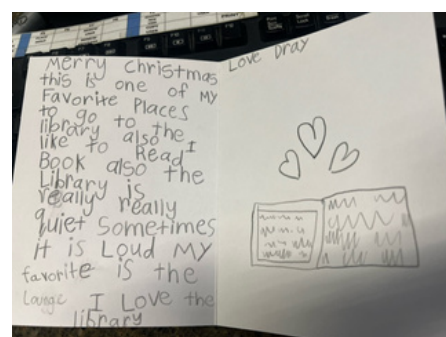 Merry Christmas
this is one of My
Favorite Places
to go to the
library I
like to also Read
Book also the
Library is
really really
quiet Sometimes
it is Loud My
favorite is the
Lounge I Love the
library
Love Dray